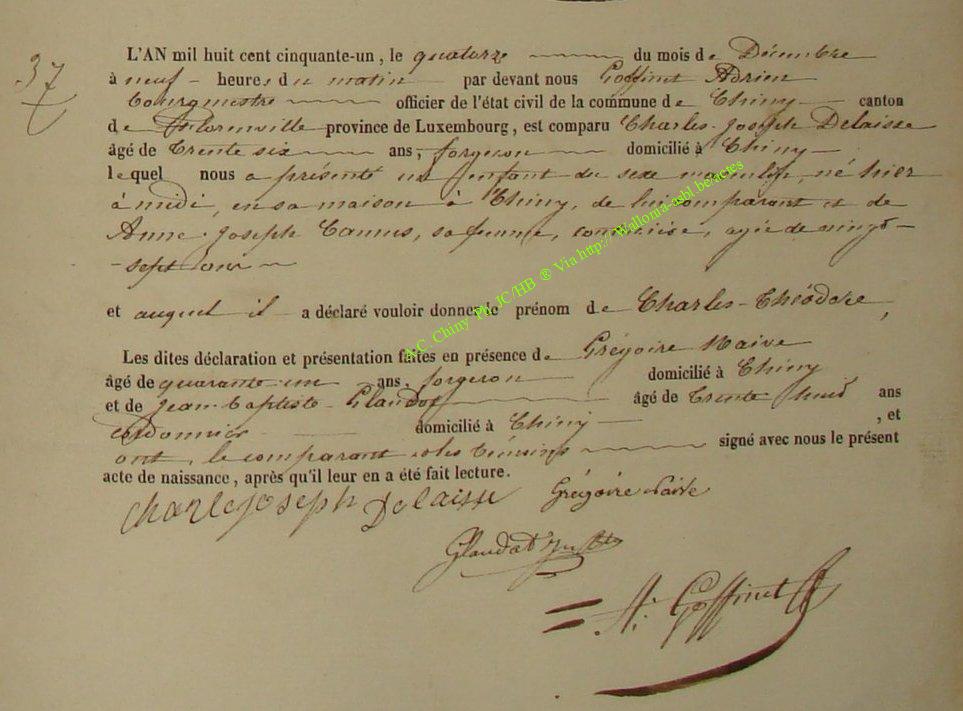 37
L'AN mil huit cent cinquante-un, le quatorze du mois de Décembre
à neuf heures du matin par devant nous Goffinet Adrien
bourgmestre officier de l'état civil de la commune de Chiny canton
de Florenville province de Luxembourg, est comparu Charles-Joseph Delaisse
âgé de trente six ans, forgeron domicilié à Chiny
lequel nous a présenté un enfant du sexe masculin, né hier
à midi, en sa maison à Chiny, de lui comparant et de
Anne-Joseph Camus, sa femme, âgée de vingt-
-sept ans
et auquel il a déclaré vouloir donner le prénom de Charles-Théodore,
Les dites déclaration et présentation faites en présence de Grégoire Naive
âgé de quarante un ans, forgeron domicilié à Chiny
et de Jean-Baptiste Glaudot âgé de trente huit ans
cordonnier domicilié à Chiny, et
ont, le comparant et les témoins signé avec nous le présent
acte de naissance, après qu'il leur en a été fait lecture.
Charle joseph Delaisse Grégoire Naive
Glaudot
A. Goffinet
A.C. Chiny Ph JC/HB ® Via http://Wallonia-asbl.be/actes